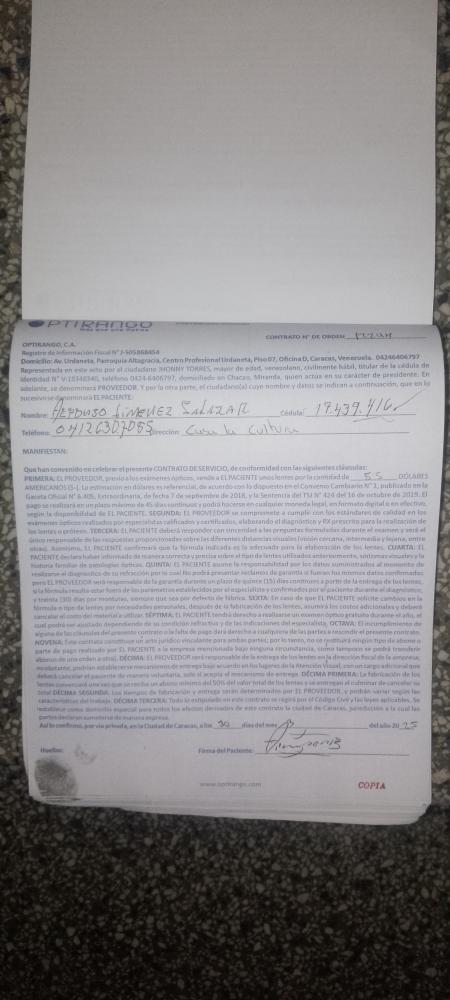 OPTIRANGO
CONTRATO N° DE ORDEN
OPTIRANGO, C.A.
Registro de Información Fiscal N° J-505868454
Domicilio: Av. Urdaneta, Parroquia Altagracia, Centro Profesional Urdaneta, Piso 07, Oficina D, Caracas, Venezuela. 04246406797
Representada en este acto por el ciudadano JHONNY TORRES, mayor de edad, venezolano, civilmente hábil, titular de la cédula de
identidad N° V-18348340, teléfono 0424-6406797, domiciliado en Chacao, Miranda, quien actúa en su carácter de presidente. En
adelante, se denominará PROVEEDOR. Y por la parte, el ciudadano(a) cuyo nombre y datos se indican a continuación, que en lo
sucesivo se denominará EL PACIENTE:
Nombre: JIMENEZ SALAZAR Cédula: 17.439.416
Teléfono: 04126307055 Dirección: Casa la Cultura
MANIFIESTAN:
Que han convenido en celebrar el presente CONTRATO DE SERVICIO, de conformidad con las siguientes cláusulas:
PRIMERA: EL PROVEEDOR, previo a los exámenes ópticos, vende a EL PACIENTE unos lentes por la cantidad de 55 DÓLARES
AMERICANOS ($-). La estimación en dólares es referencial, de acuerdo con lo dispuesto en el Convenio Cambiario N° 1, publicado en la
Gaceta Oficial N° 6.405, Extraordinaria, de fecha 7 de septiembre de 2018, y la Sentencia del TSJ N° 424 del 16 de octubre de 2019. El
pago se realizará en un plazo máximo de 45 días continuos y podrá hacerse en cualquier moneda legal, en formato digital o en efectivo,
según la disponibilidad de EL PACIENTE. SEGUNDA: EL PROVEEDOR se compromete a cumplir con los estándares de calidad en los
exámenes ópticos realizados por especialistas calificados y certificados, elaborando el diagnóstico y RX prescrito para la realización de
los lentes o prótesis. TERCERA: EL PACIENTE deberá responder con sinceridad a las preguntas formuladas durante el examen y será el
único responsable de las respuestas proporcionadas sobre las diferentes distancias visuales (visión cercana, intermedia y lejana, entre
otras). Asimismo, EL PACIENTE confirmará que la fórmula indicada es la adecuada para la elaboración de los lentes. CUARTA: EL
PACIENTE declara haber informado de manera correcta y precisa sobre el tipo de lentes utilizados anteriormente, síntomas visuales y la
historia familiar de patologías ópticas. QUINTA: EL PACIENTE asume la responsabilidad por los datos suministrados al momento de
realizarse el diagnóstico de su refracción por lo cual No podrá presentar reclamos de garantía si fueran los mismos datos confirmados
pero EL PROVEEDOR será responsable de la garantía durante un plazo de quince (15) días continuos a partir de la entrega de los lentes,
si la fórmula resulta estar fuera de los parámetros establecidos por el especialista y confirmados por el paciente durante el diagnóstico,
y treinta (30) días por monturas, siempre que sea por defecto de fábrica. SEXTA: En caso de que EL PACIENTE solicite cambios en la
fórmula o tipo de lentes por necesidades personales, después de la fabricación de los lentes, asumirá los costos adicionales y deberá
cancelar el costo del material a utilizar. SÉPTIMA: EL PACIENTE tendrá derecho a realizarse un examen óptico gratuito durante el año, el
cual podrá ser ajustado dependiendo de su condición refractiva y de las indicaciones del especialista. OCTAVA: El incumplimiento de
alguna de las cláusulas del presente contrato o la falta de pago dará derecho a cualquiera de las partes a rescindir el presente contrato.
NOVENA: Este contrato constituye un acto jurídico vinculante para ambas partes; por lo tanto, no se restituirá ningún tipo de abono o
parte de pago realizado por EL PACIENTE a la empresa mencionada bajo ninguna circunstancia, como tampoco se podrá transferir
abonos de una orden a otra). DÉCIMA: EL PROVEEDOR será responsable de la entrega de los lentes en la dirección fiscal de la empresa;
no obstante, podrían establecerse mecanismos de entrega bajo acuerdo en los lugares de la Atención Visual, con un cargo adicional que
deberá cancelar el paciente de manera voluntaria, solo si acepta el mecanismo de entrega. DÉCIMA PRIMERA: La fabricación de los
lentes comenzará una vez que se reciba un abono mínimo del 50% del valor total de los lentes y se entregan al culminar de cancelar su
total DÉCIMA SEGUNDA: Los tiempos de fabricación y entrega serán determinados por EL PROVEEDOR, y podrán variar según las
características del trabajo. DÉCIMA TERCERA: Todo lo estipulado en este contrato se regirá por el Código Civil y las leyes aplicables. Se
establece como domicilio especial para todos los efectos derivados de este contrato la ciudad de Caracas, jurisdicción a la cual las
partes declaran someterse de manera expresa.
Así lo confirmo, por vía privada, en la Ciudad de Caracas, a los 30 días del mes del año 2025
Huellas: Firma del Paciente:
www.optirango.com COPIA